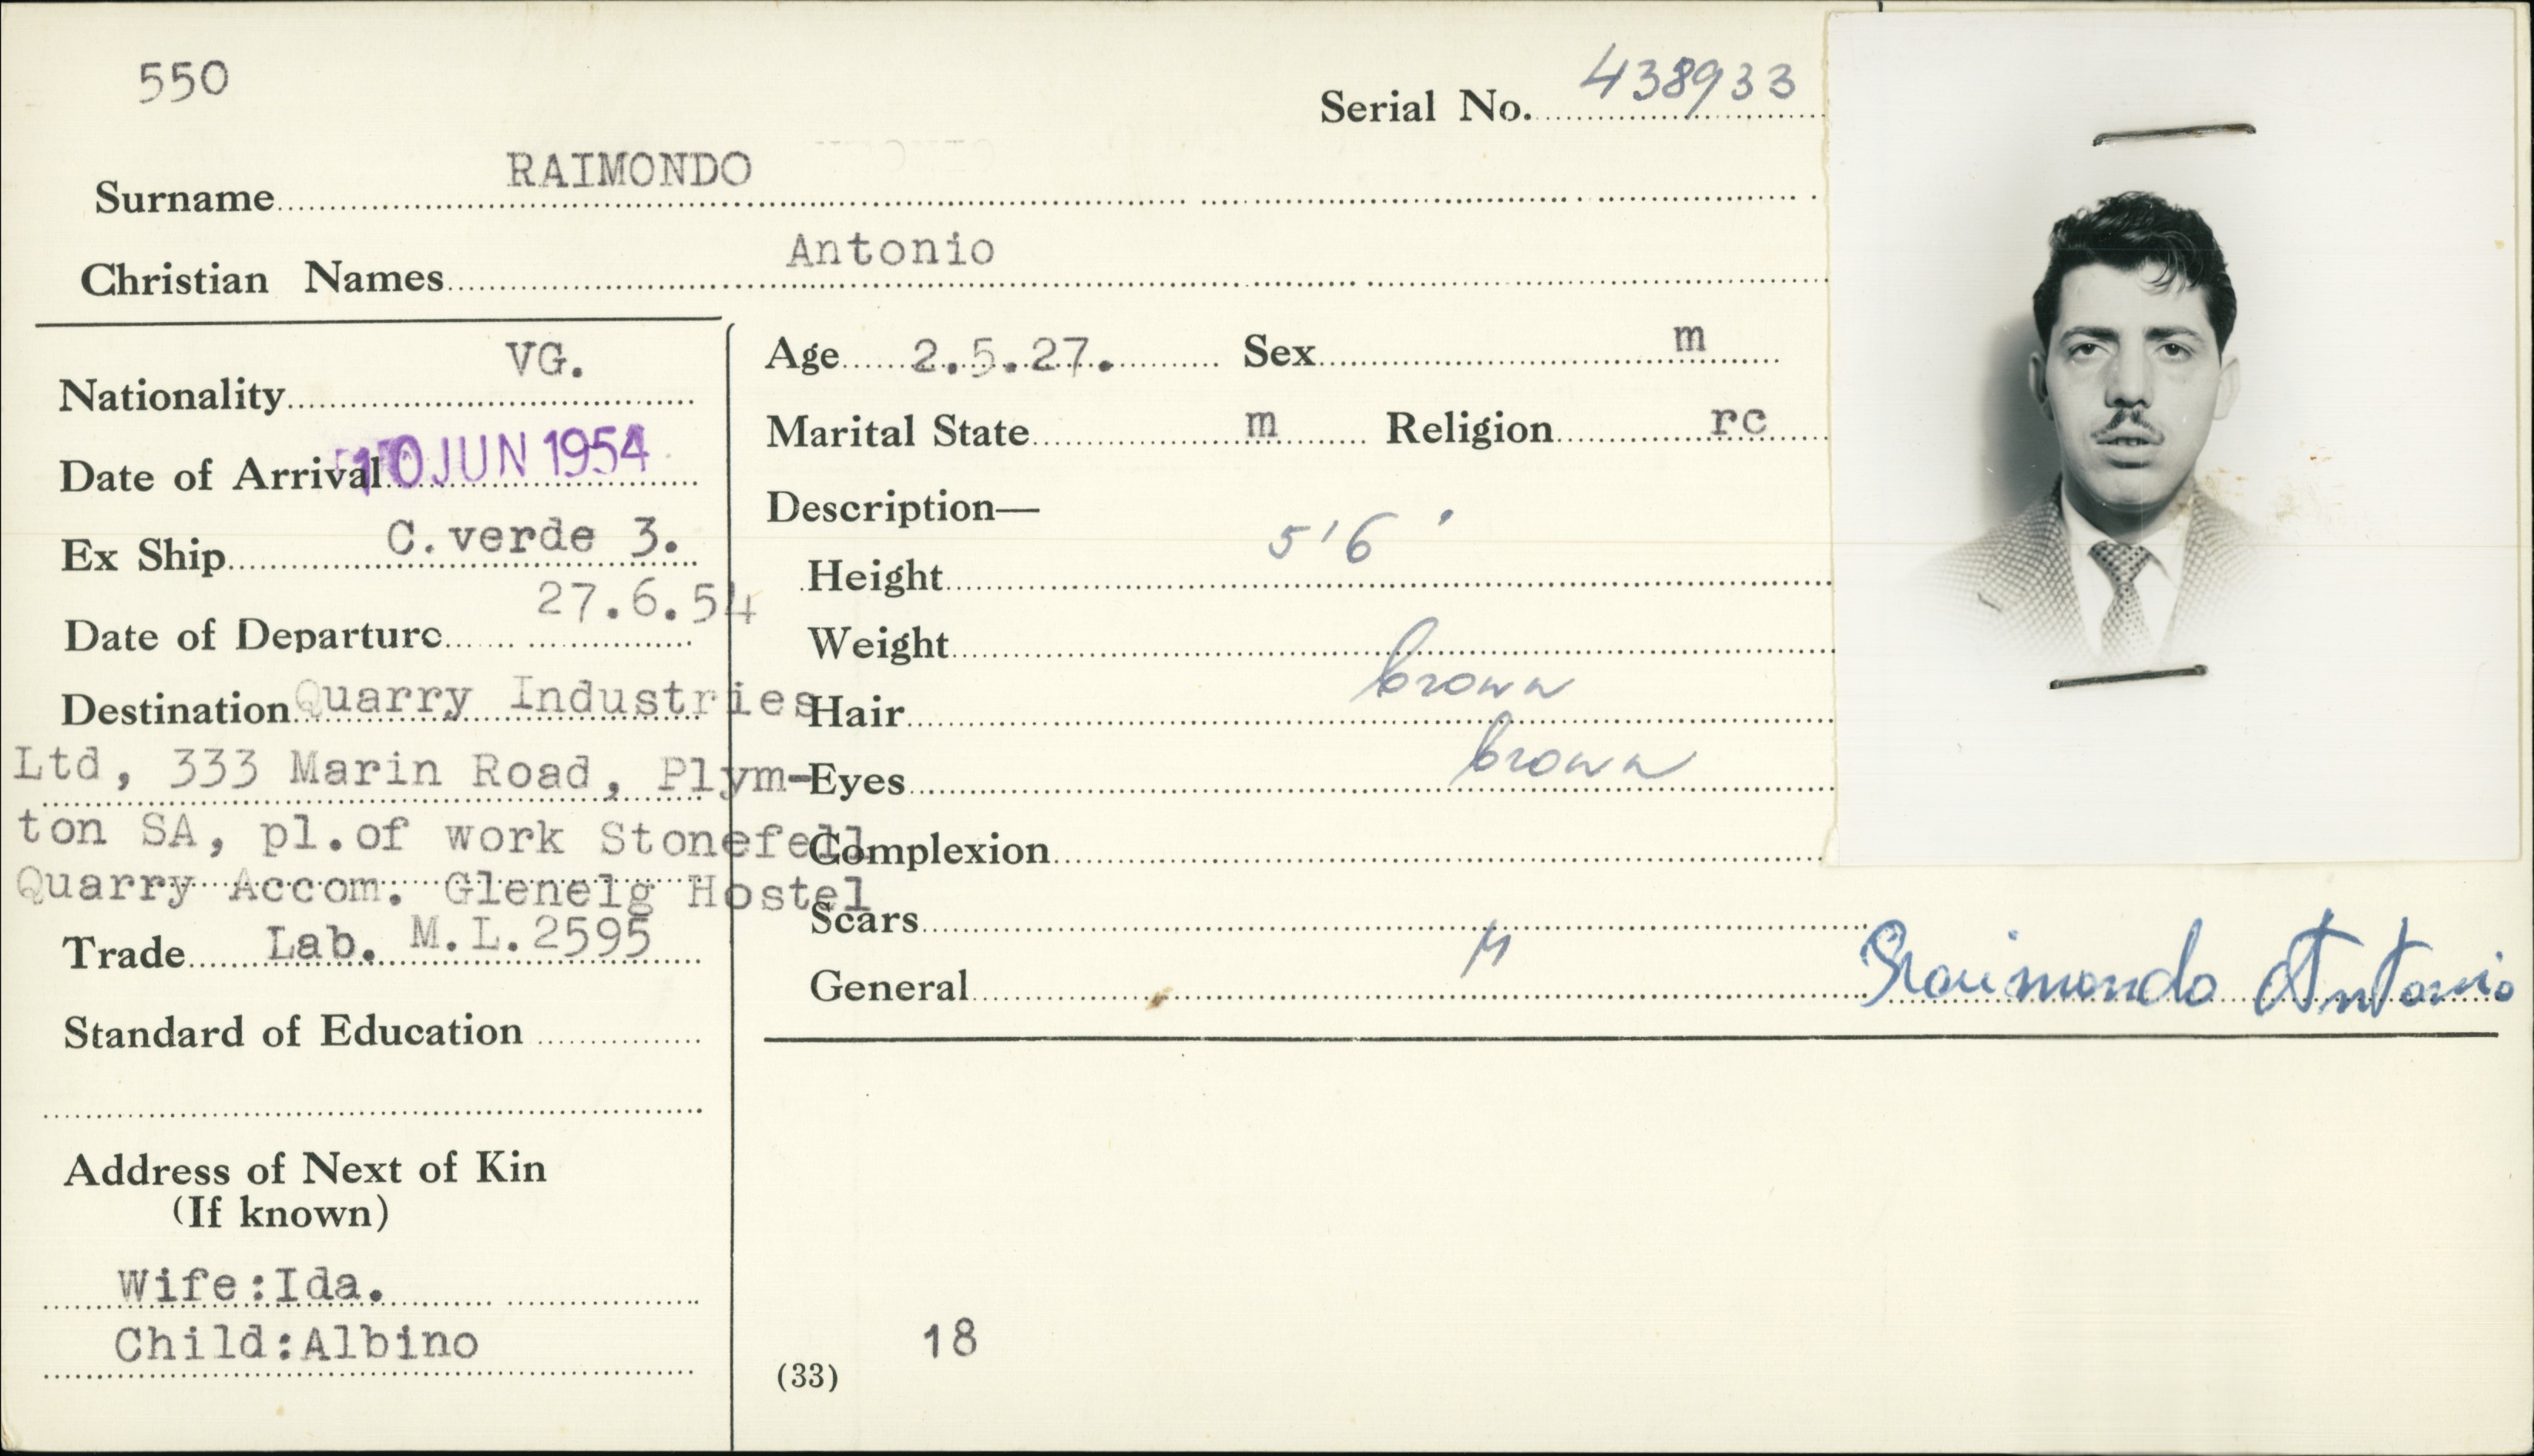 550
Serial No. 438933
Surname RAIMONDO
Christian Names Antonio
Nationality VG.
Date of Arrival 10 JUN 1954
Ex Ship C.verde 3.
Date of Departure 27.6.54
Destination Quarry Industries
Ltd, 333 Marin Road, Plym-
ton SA, pl.of work Stonefell
Quarry Accom. Glenelg Hostel
Trade Lab. M.L.2595
Standard of Education
Address of Next of Kin
(If known)
Wife:Ida.
Child:Albino
Age 2.5.27. Sex m
Marital State m Religion rc
Description—
Height 5'6'
Weight
Hair brown
Eyes brown
Complexion
Scars
General
Raimondo Antonio
18
(33)